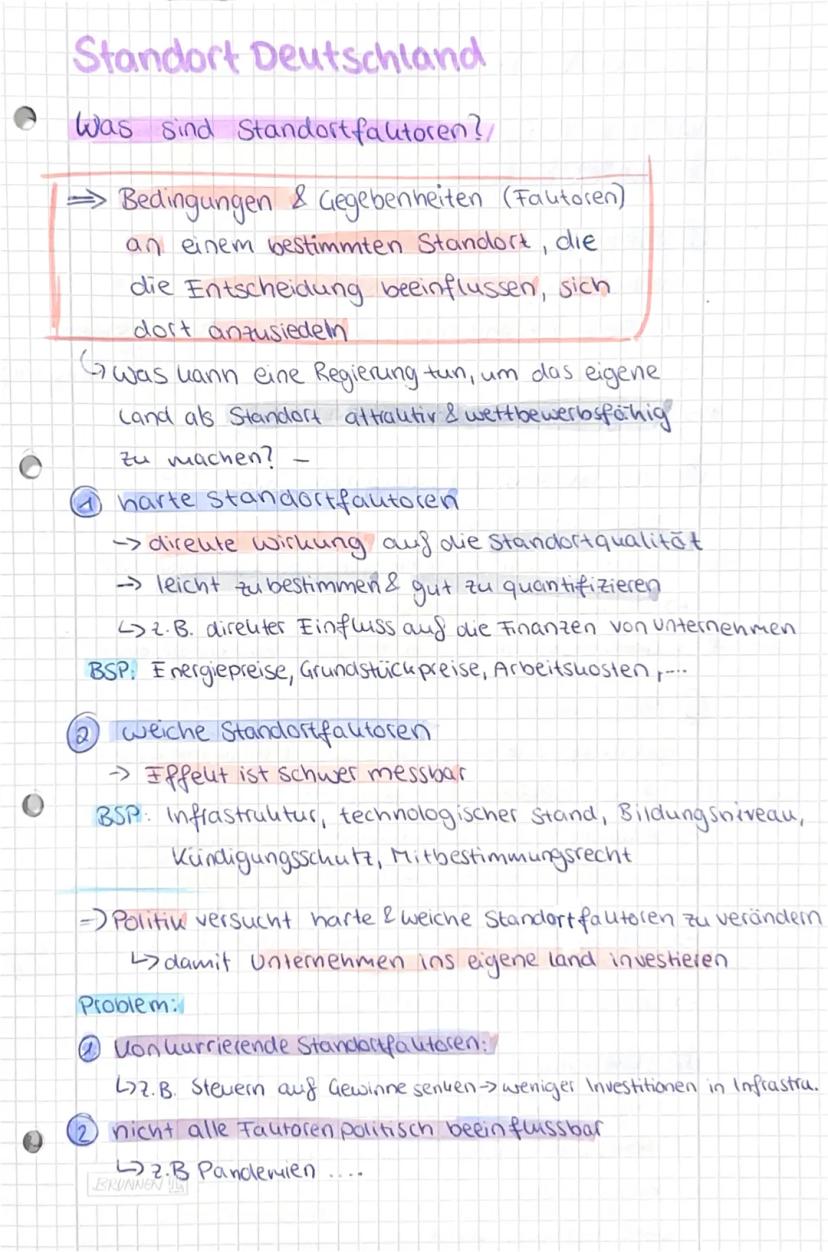 Standort Deutschland
Was sind Standortfaktoren?
⇒ Bedingungen & Gegebenheiten (Faktoren)
an einem bestimmten Standort, die
die Entscheidung beeinflussen, sich
dort anzusiedeln
↳ Was kann eine Regierung tun, um das eigene
Land als Standort attraktiv & wettbewerbsfähig
zu machen? –
① harte Standortfaktoren
→ direkte Wirkung auf die Standortqualität
→ leicht zu bestimmen & gut zu quantifizieren
↳ z.B. direkter Einfluss auf die Finanzen von Unternehmen
BSP: Energiepreise, Grundstückpreise, Arbeitskosten,...
② weiche Standortfaktoren
→ Effekt ist schwer messbar
BSP: Infrastruktur, technologischer Stand, Bildungsniveau,
Kündigungsschutz, Mitbestimmungsrecht
⇒ Politik versucht harte & weiche Standortfaktoren zu verändern
↳ damit Unternehmen ins eigene Land investieren
Problem:
① Konkurrierende Standortfaktoren:
↳ z.B. Steuern auf Gewinne senken → weniger Investitionen in Infrastru.
② nicht alle Faktoren politisch beeinflussbar
↳ z.B Pandemien ....
BRUNNEN